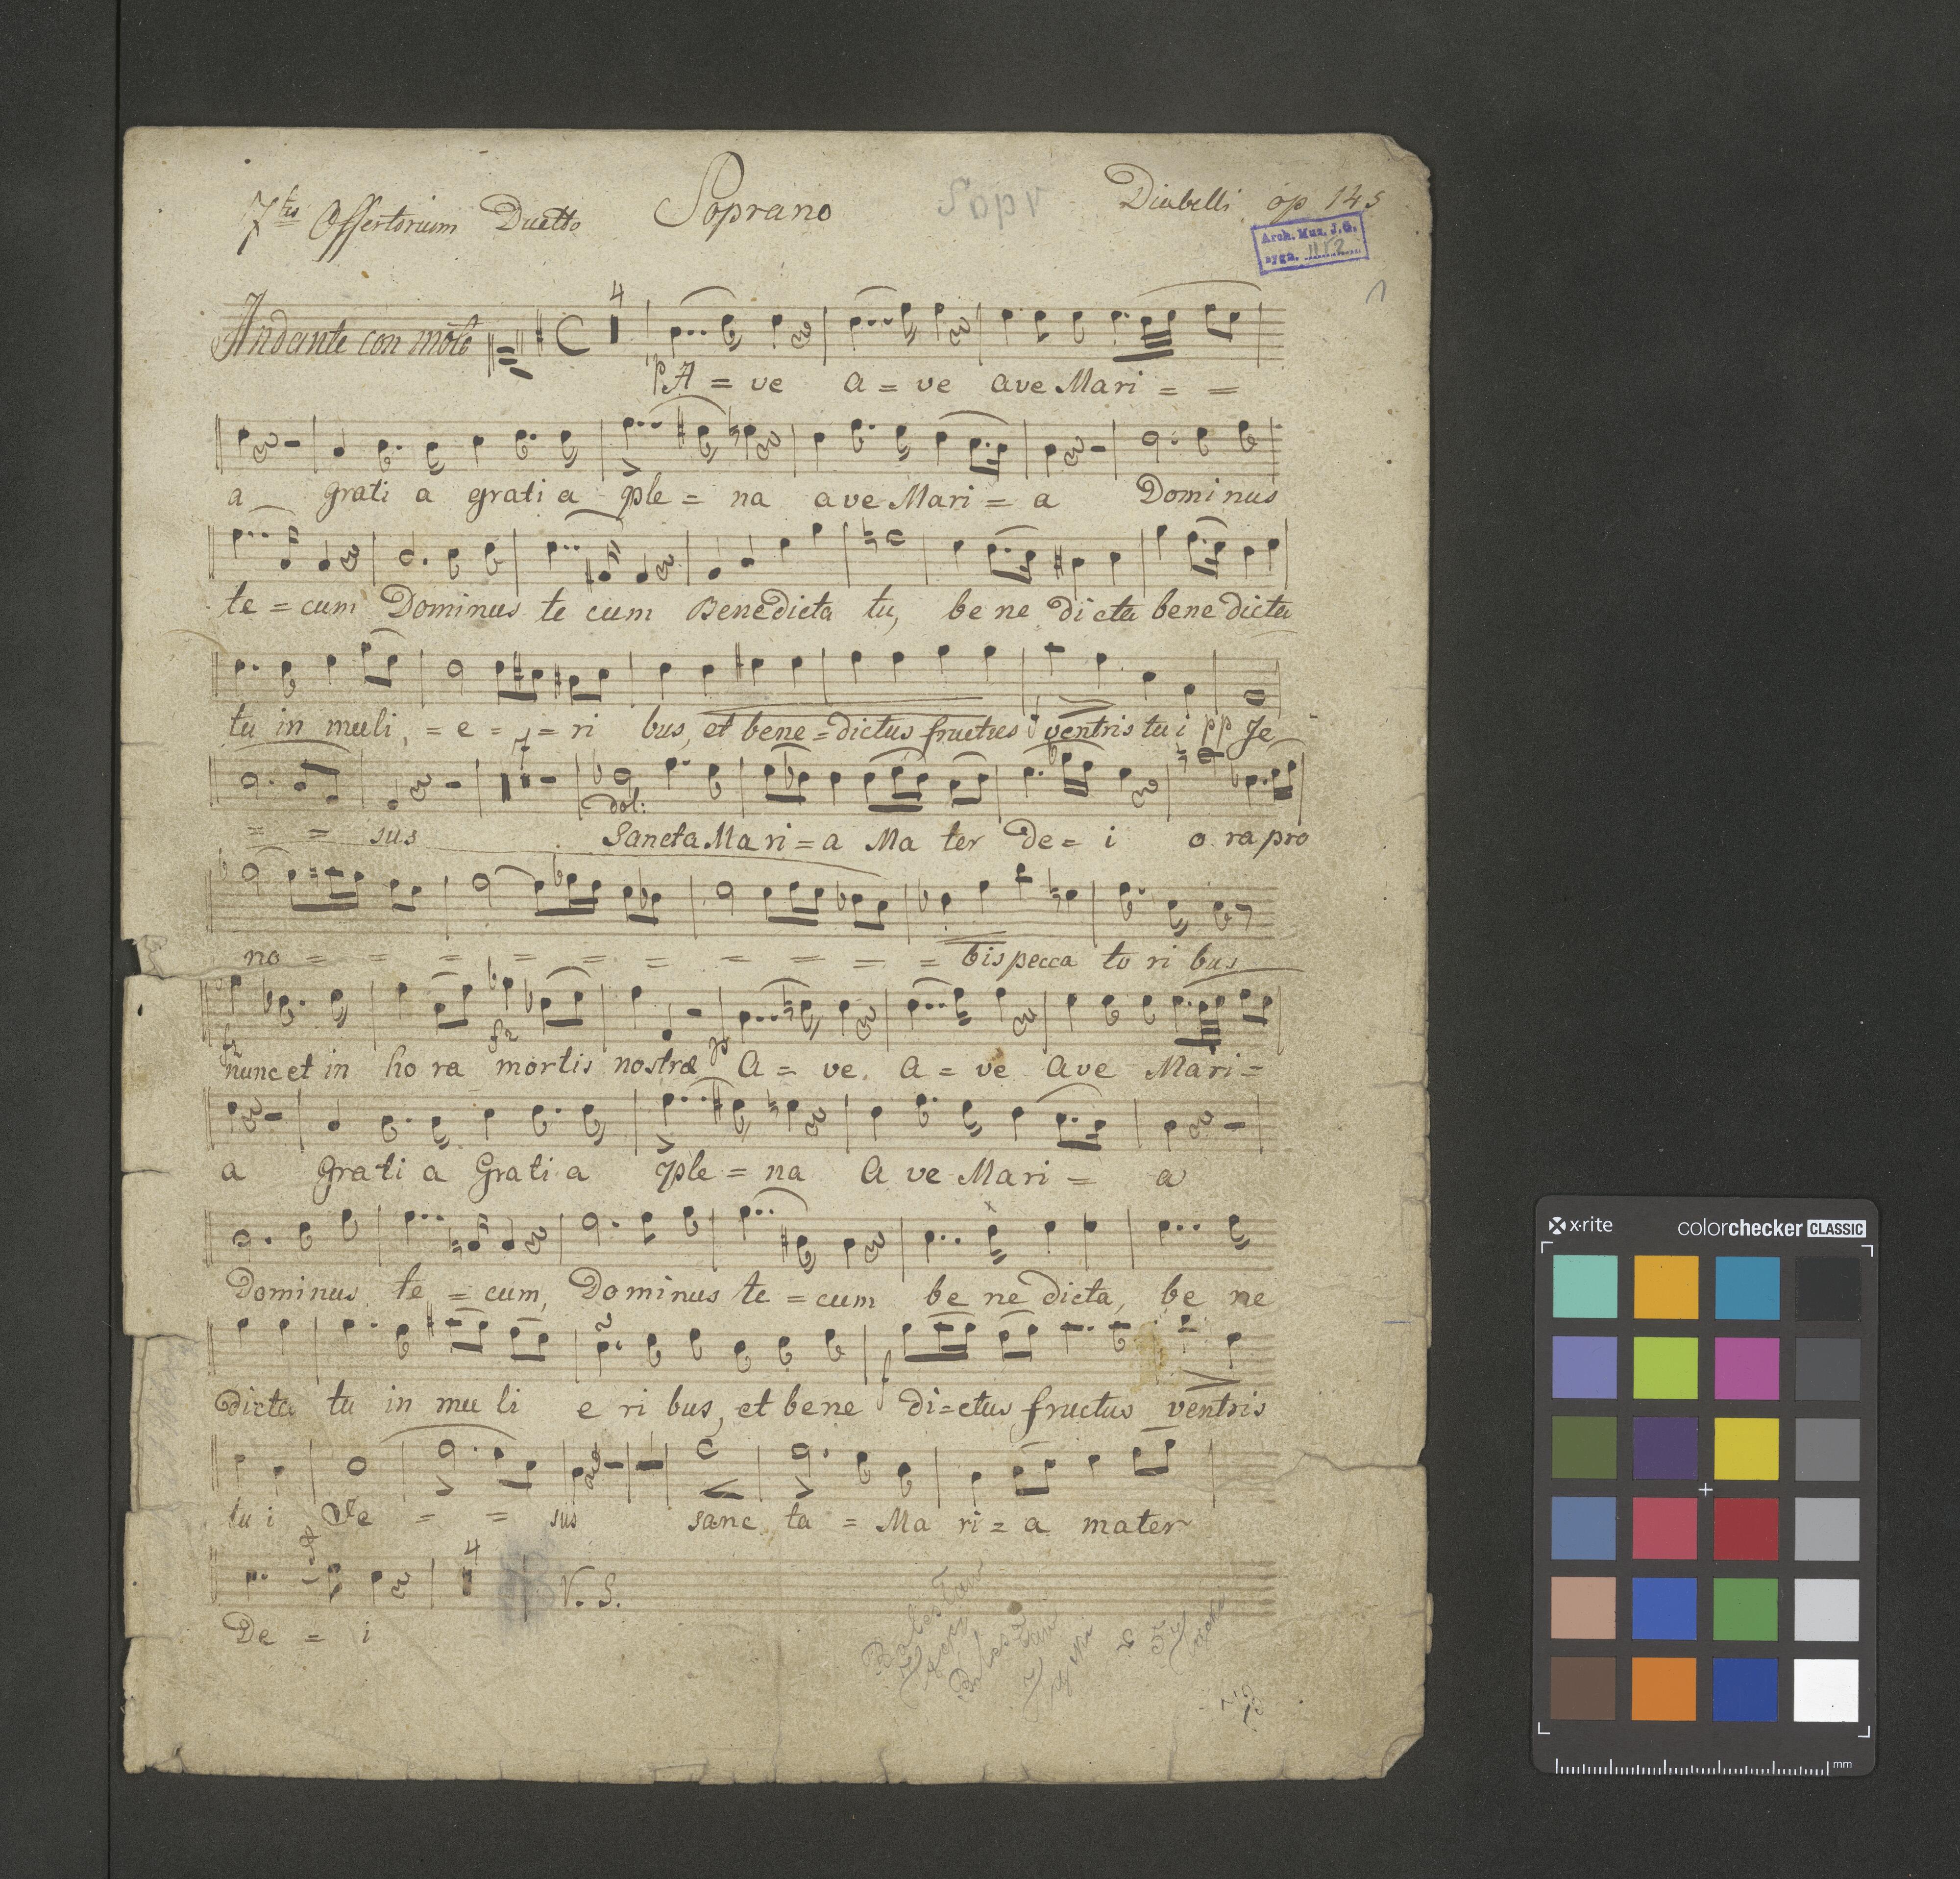 7tes Offertorium Duetto Soprano Sopr Diabelli op 145
Arch. Muz. J.G.
sygn. 1152
1
Andante con moto 4
p A = ve a = ve ave Mari = =
a grati a grati a ple = na ave Mari = a Dominus
te = cum Dominus te cum Benedicta tu, be ne dicta bene dicta
tu in muli = e = = ri bus, et bene = dictus fructus f ventris tui pp Je
7
dol:
= = sus Sancta Mari = a Ma ter De = i o ra pro
no = = = = = = = = = = bis pecca to ri bus
fz fz p
nunc et in ho ra mortis nostræ A = ve A = ve Ave Mari =
a Grati a Grati a ple = na A ve Mari = a
Dominus te = cum, Dominus te = cum be ne dicta, be ne
dicta tu in mu li e ri bus, et bene f di = ctus fructus ventris
tu i Je = = sus sanc ta = Ma ri = a mater
4 V. S.
De = i
x-rite colorchecker CLASSIC
mm